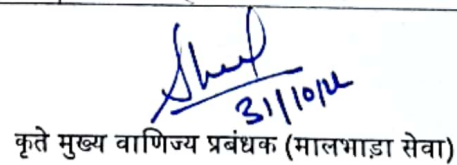 31/10/22
कृते मुख्य वाणिज्य प्रबंधक (मालभाड़ा सेवा)